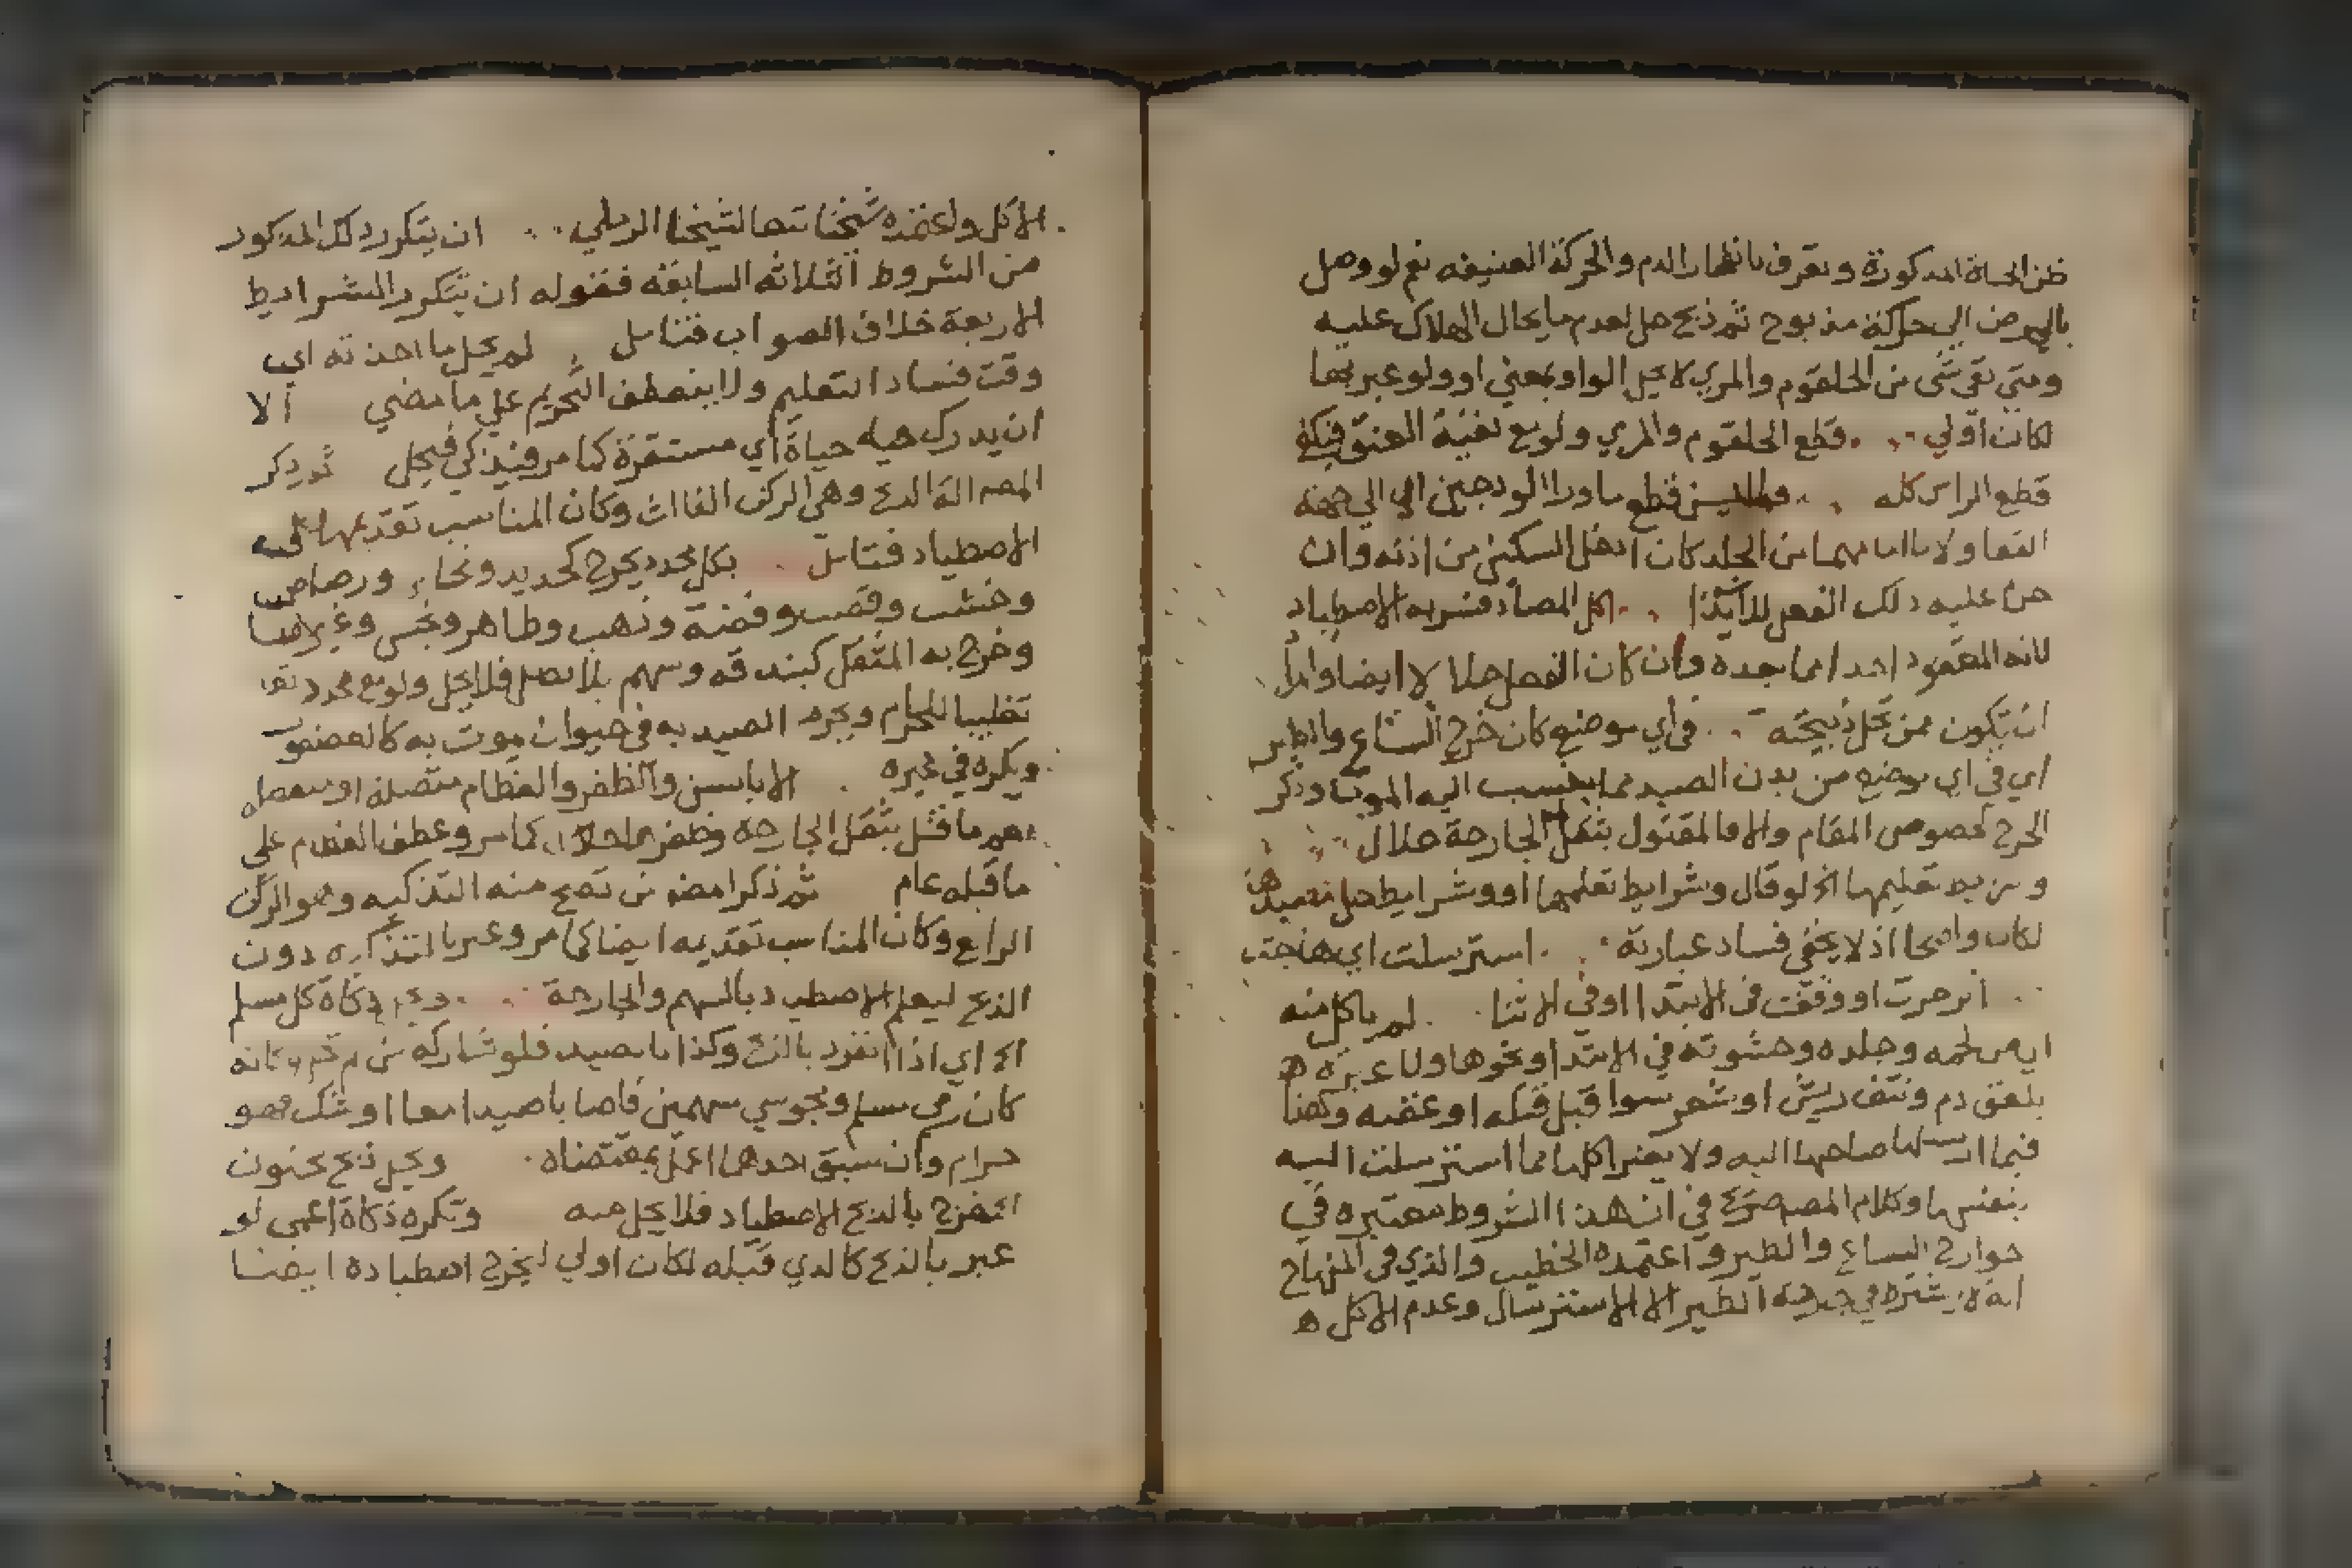 ظن الحياة المذكورة وتعرف بانفجار الدم والحركة العنيفه نعم لو وصل
بالمرض الي حركة مذبوح ثم ذبح حل لعدم ما يحال الهلاك عليه
ومتي بقي شي من الحلقوم والمري لا يحل الواو بمعني او ولو عبر بها
لكان اولي قطع الحلقوم والمري ولو مع بقية العنق فيكفي
قطع الراس كله قطع ما ورا الودجين الي جهة
القفا ولا ما امامهما من الجلد كان ادخل السكين من اذنه وان
حرم عليه ذلك الفعل للايذا اكل المصاد فسر به الاصطياد
لانه المقصود احدا مما بعده وان كان الفعل حلالا ايضا
ان تكون ممن تحل ذبيحته في اي موضع كان جرح السباع والطير
اي في اي موضع من بدن الصيد مما ينسب اليه الموت وذكر
الجرح لخصوص المقام والا فالمقتول بثقل الجارحة حلال
تعليمها اذ لو قال وشرايط تعلمها او وشرايط حل
لكان واضحا اذ لا يخفي فساد عبارته استرسلت اي هاجت
انزجرت او وقفت في الابتدا او في الاثنا لم ياكل منه
اي من لحمه وجلده وحشوته في الابتدا ونحوها ولا عبرة
بلعق دم ونتف ريش او شعر سوا قبل قتله او عقبه وكهذا
فيما ارسلها صاحبها اليه ولا يضر اكلها مما استرسلت اليه
بنفسها وكلام المصه صريح في ان هذا الشروط معتبرة في
جوارح السباع والطير واعتمده الخطيب والذي في المنهاج
انه لا يشترط في جارحة الطير الا الاسترسال وعدم الاكل
الاكل واعتمده شيخنا تبعا لشيخنا الرملي ان يتكرر ذلك المذكور
من الشروط الثلاثه السابقه فقوله ان تتكرر الشرايط
الاربعة خلاف الصواب فتامل لم يحل ما اخذته اي
وقت فساد التعليم ولا ينعطف التحريم علي ما مضي الا
ان يدرك حيه حياة اي مستقرة كما مر فيذكي فيحل ثم ذكر
المصه الة الذبح وهي الركن الثالث وكان المناسب تقديمها علي
الاصطياد فتامل بكل محدد يجرح كحديد ونحاس ورصاص
وخشب وقصب وفضة وذهب وطاهر ونجس وغيرها
وخرج به المثقل كبندقه وسهم بلا نصل فلا يحل ولو مع محدد
تغليبا للحرام ويحرم الصيد به في حيوان يموت به كالعصفور
ويكره في غيره الا بالسن والظفر والعظام متصلة او منفصله
نعم ما قتل بثقل الجارحة وظفرها حلال كما مر وعطف العظام علي
ما قبله عام ثم ذكر المصه من تصح منه التذكيه وهو الركن
الرابع وكان المناسب تقديمه ايضا كما مر وعبر بالتذكيه دون
الذبح ليعلم الاصطياد بالسهم والجارحة ذكاة كل مسلم
اي اذا انفرد بالذبح وكذا بالصيد فلو شاركه من لم تحل ذكاته
كان رمي مسلم ومجوسي سهمين فاصابا صيدا معا او شك فهو
حرام وان سبق احدهما اعمل بمقتضاه ويحل ذبح مجنون
بالذبح الاصطياد فلا يحل منه وتكره ذكاة اعمي لو
عبر بالذبح كالذي قبله لكان اولي ليخرج اصطياده ايضا